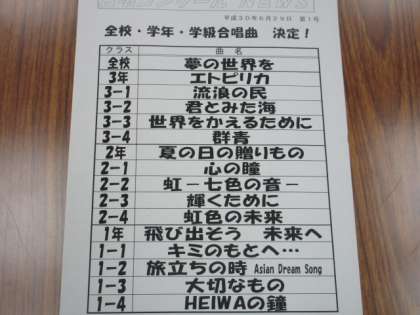 合唱コンクール NEWS
平成30年6月29日 第1号
全校・学年・学級合唱曲 決定！
クラス 曲名
全校 夢の世界を
3年 エトピリカ
3-1 流浪の民
3-2 君とみた海
3-3 世界をかえるために
3-4 群青
2年 夏の日の贈りもの
2-1 心の瞳
2-2 虹－七色の音－
2-3 輝くために
2-4 虹色の未来
1年 飛び出そう 未来へ
1-1 キミのもとへ…
1-2 旅立ちの時 Asian Dream Song
1-3 大切なもの
1-4 HEIWAの鐘